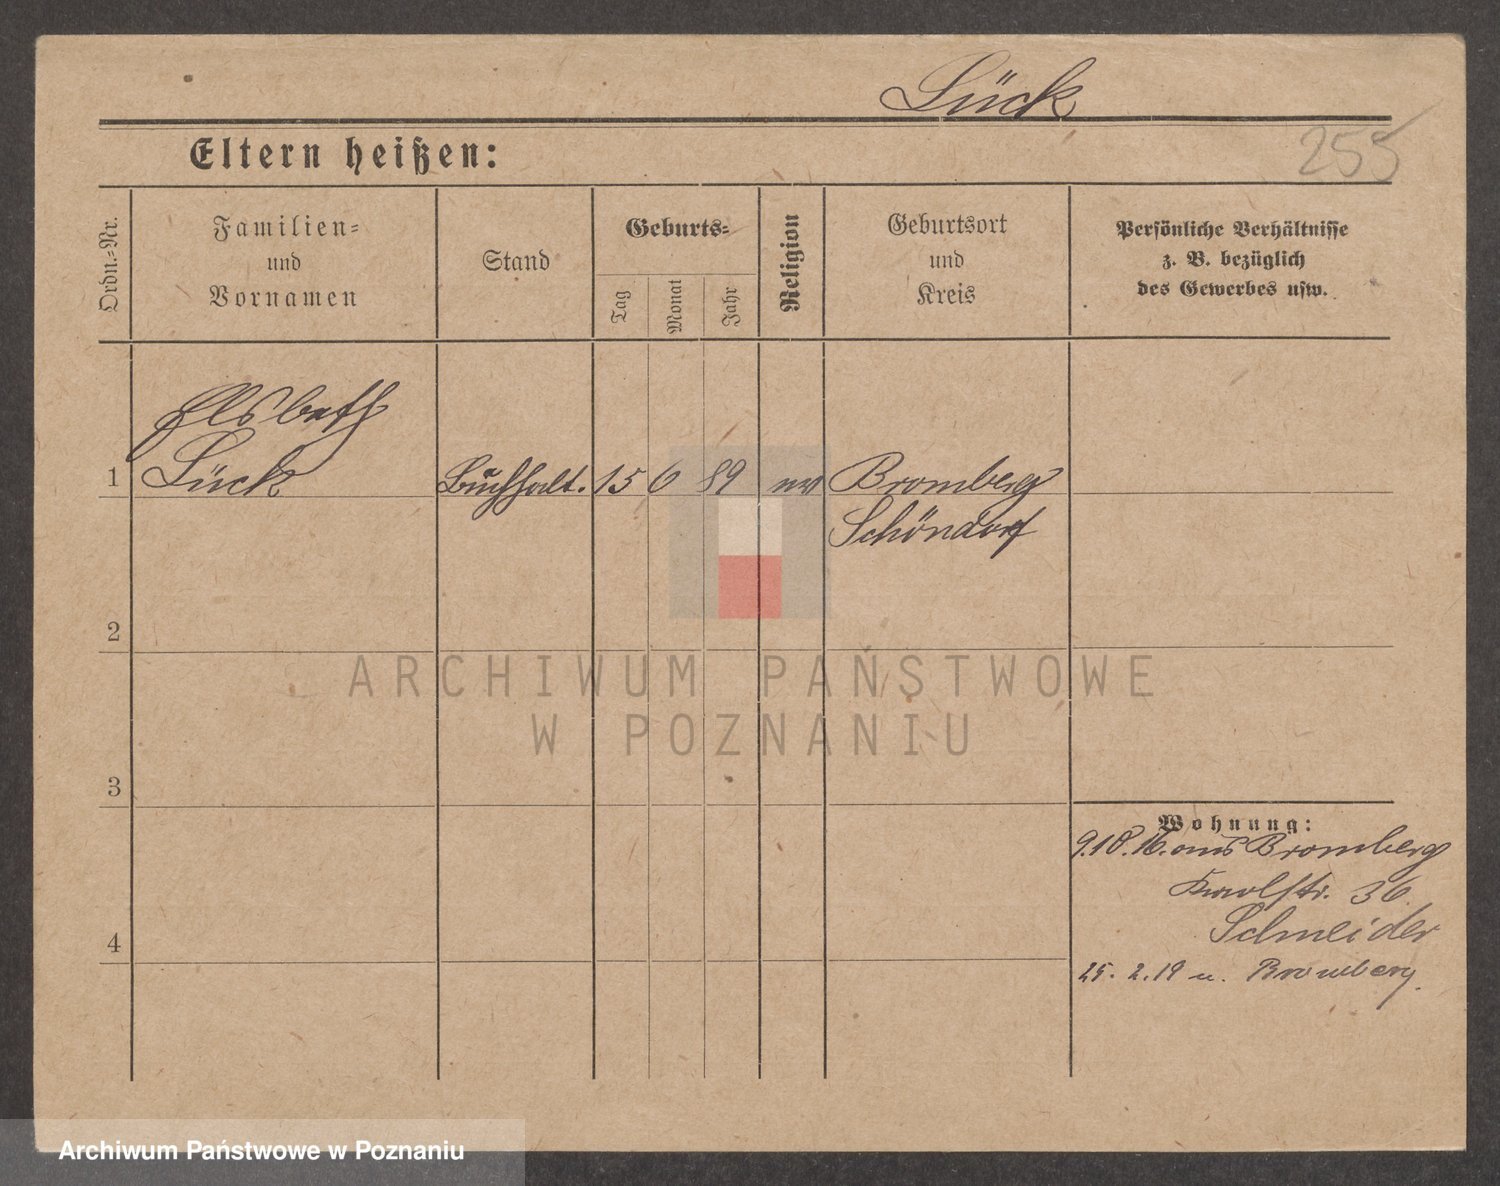 Lück
255
Eltern heißen:
Ordn.-Nr.
Familien-
und
Vornamen
Stand
Geburts-
Tag
Monat
Jahr
Religion
Geburtsort
und
Kreis
Persönliche Verhältnisse
z. B. bezüglich
des Gewerbes usw.
Elsbeth
1 Lück Buchhalt. 15 6 89 ev Bromberg
Schöndorf
2
ARCHIWUM PAŃSTWOWE
W POZNANIU
3
Wohnung:
9.10.16. aus Bromberg
Karolstr. 36
Schneider
4
25. 2. 19 n. Bromberg.
Archiwum Państwowe w Poznaniu